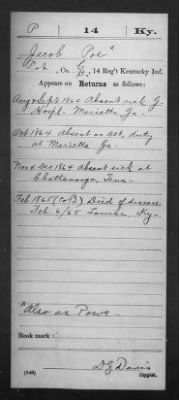 P 14 Ky.
Jacob Poe*
Pvt, Co. G, 14 Reg't Kentucky Inf.
Appears on Returns as follows:
Aug & Sept. 1864 Absent sick G.
Hospl. Marietta, Ga.
Oct 1864 Absent on Det. duty
at Marietta Ga.
Nov & Dec 1864 Absent sick at
Chattanooga, Tenn.
Feb 1865 (Co B) Died of disease
Feb 6/65 Louisa, Ky.
*Also as Powe
Book mark:
(546)
D E Davis
Copyist.